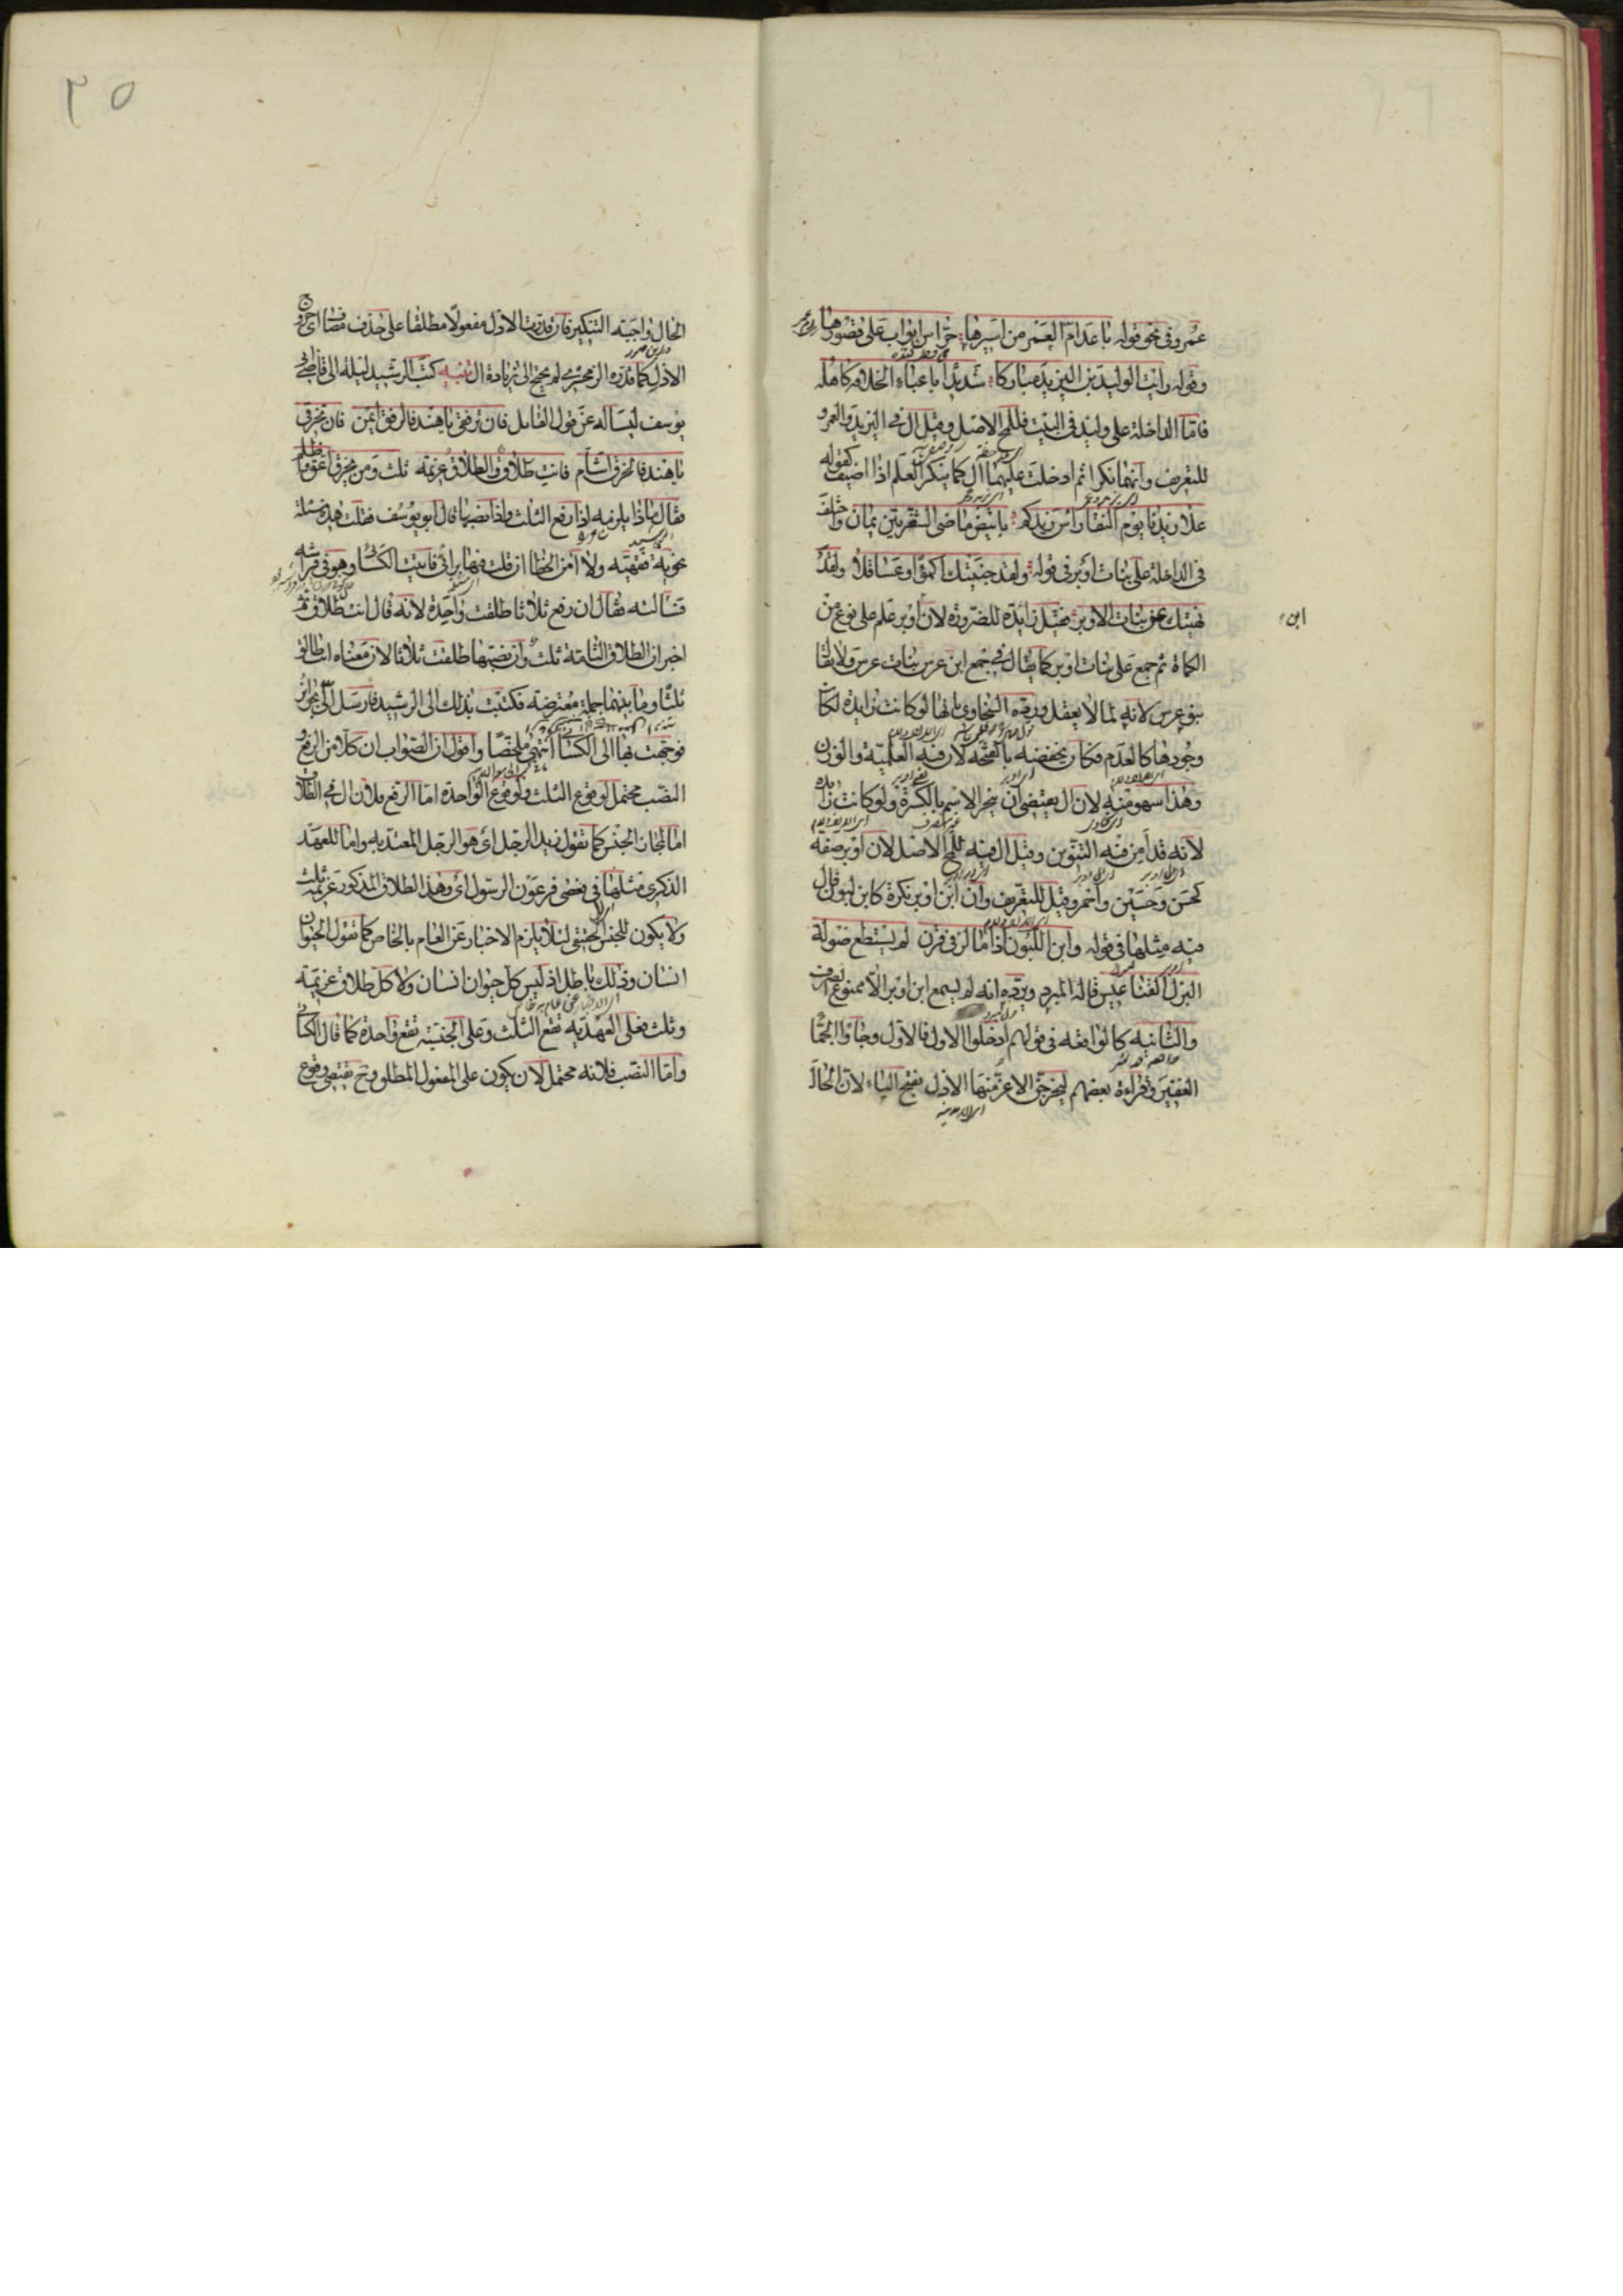 عمرو في نحو قوله باعدام العمر من اسيرها حراس ابواب على قصورها
وقوله رايت الوليد بن اليزيد مباركا شديدا باعباء الخلافة كاهله
فاما الداخلة على وليد في البيت فللمح الاصل وقيل ال في اليزيد والعمرو
للتعريف وانهما نكرا ثم ادخلت عليهما ال كما ينكر العلم اذا اضيف كقوله
علا زيدنا يوم النقا راس زيدكم بابيض ماضي الشفرتين يمان واختلف
في الداخلة على بنات اوبر في قوله ولقد جنيتك اكمؤا وعساقلا ولقد
نهيتك عن بنات الاوبر فقيل زايدة للضرورة لان ابن اوبر علم على نوع من
الكماة ثم جمع على بنات اوبر كما يقال في جمع ابن عرس بنات عرس ولا يقال
بنو عرس لانه لما لا يعقل ورده السخاوي بانها لو كانت زايدة لكان
وجودها كالعدم فكان يخفضه بالفتحة لان فيه العلمية والوزن
وهذا سهو منه لان ال يقتضي ان ينجر الاسم بالكسرة ولو كانت زايدة
لانه قد امن فيه التنوين وقيل ال فيه للمح الاصل لان اوبر صفة
كحسن وحسين واحمر وقيل للتعريف وان ابن اوبر نكرة كابن لبون فال
فيه مثلها في قوله وابن اللبون اذا ما لز في قرن لم يستطع صولة
البزل القناعيس قاله المبرد ويرده انه لم يسمع ابن اوبر الا ممنوع الصرف
والثانية كالواقعة في قولهم ادخلوا الاول فالاول وجاؤا الجماء
الغفير وقراءة بعضهم ليخرجن الاعز منها الاذل بفتح الياء لان الحال
ابن
٢٥
الحال واجبة التنكير فان قدرت الاذل مفعولا مطلقا على حذف مضاف اى خروج
الاذل كما قدره الزمخشري لم يحتج الى زيادة ال تنبيه كتب الرشيد ليلة الى قاضي ابي
يوسف يسأله عن قول القائل فان ترفقي يا هند فالرفق ايمن فان تخرقي
يا هند فالخرق اشأم فانت طلاق والطلاق عزيمة ثلث ومن يخرق اعق واظلم
فقال ماذا يلزمه اذا رفع الثلث واذا نصبها قال ابو يوسف فقلت هذه مسئلة
نحوية فقهية ولا آمن الخطا ان قلت فيها براى فاتيت الكسائى وهو في فراشه
فسالته فقال ان رفع ثلاثا طلقت واحدة لانه قال انت طلاق ثم
اخبر ان الطلاق التامة ثلث وان نصبها طلقت ثلاثا لان معناه انت طالق
ثلثا وما بينهما جملة معترضة فكتبت بذلك الى الرشيد فارسل الى بجوائز
فوجهت بها الى الكسائى انتهى ملخصا واقول ان الصواب ان كلا من الرفع و
النصب محتمل لوقوع الثلث ولوقوع الواحدة اما الرفع فلان ال في الطلاق
اما لمجاز الجنس كما تقول زيد الرجل اى هو الرجل المعتد به واما للعهد
الذكرى مثلها في فعصى فرعون الرسول اى وهذا الطلاق المذكور عزيمة ثلث
ولا يكون للجنس الحقيقي لئلا يلزم الاخبار عن العام بالخاص كما تقول الحيوان
انسان وذلك باطل اذ ليس كل حيوان انسان ولا كل طلاق عزيمة
وثلث فعلى العهدية تقع الثلث وعلى الجنسية تقع واحدة كما قال الكسائى
واما النصب فلانه محتمل لان يكون على المفعول المطلق وح يقتضي وقوع